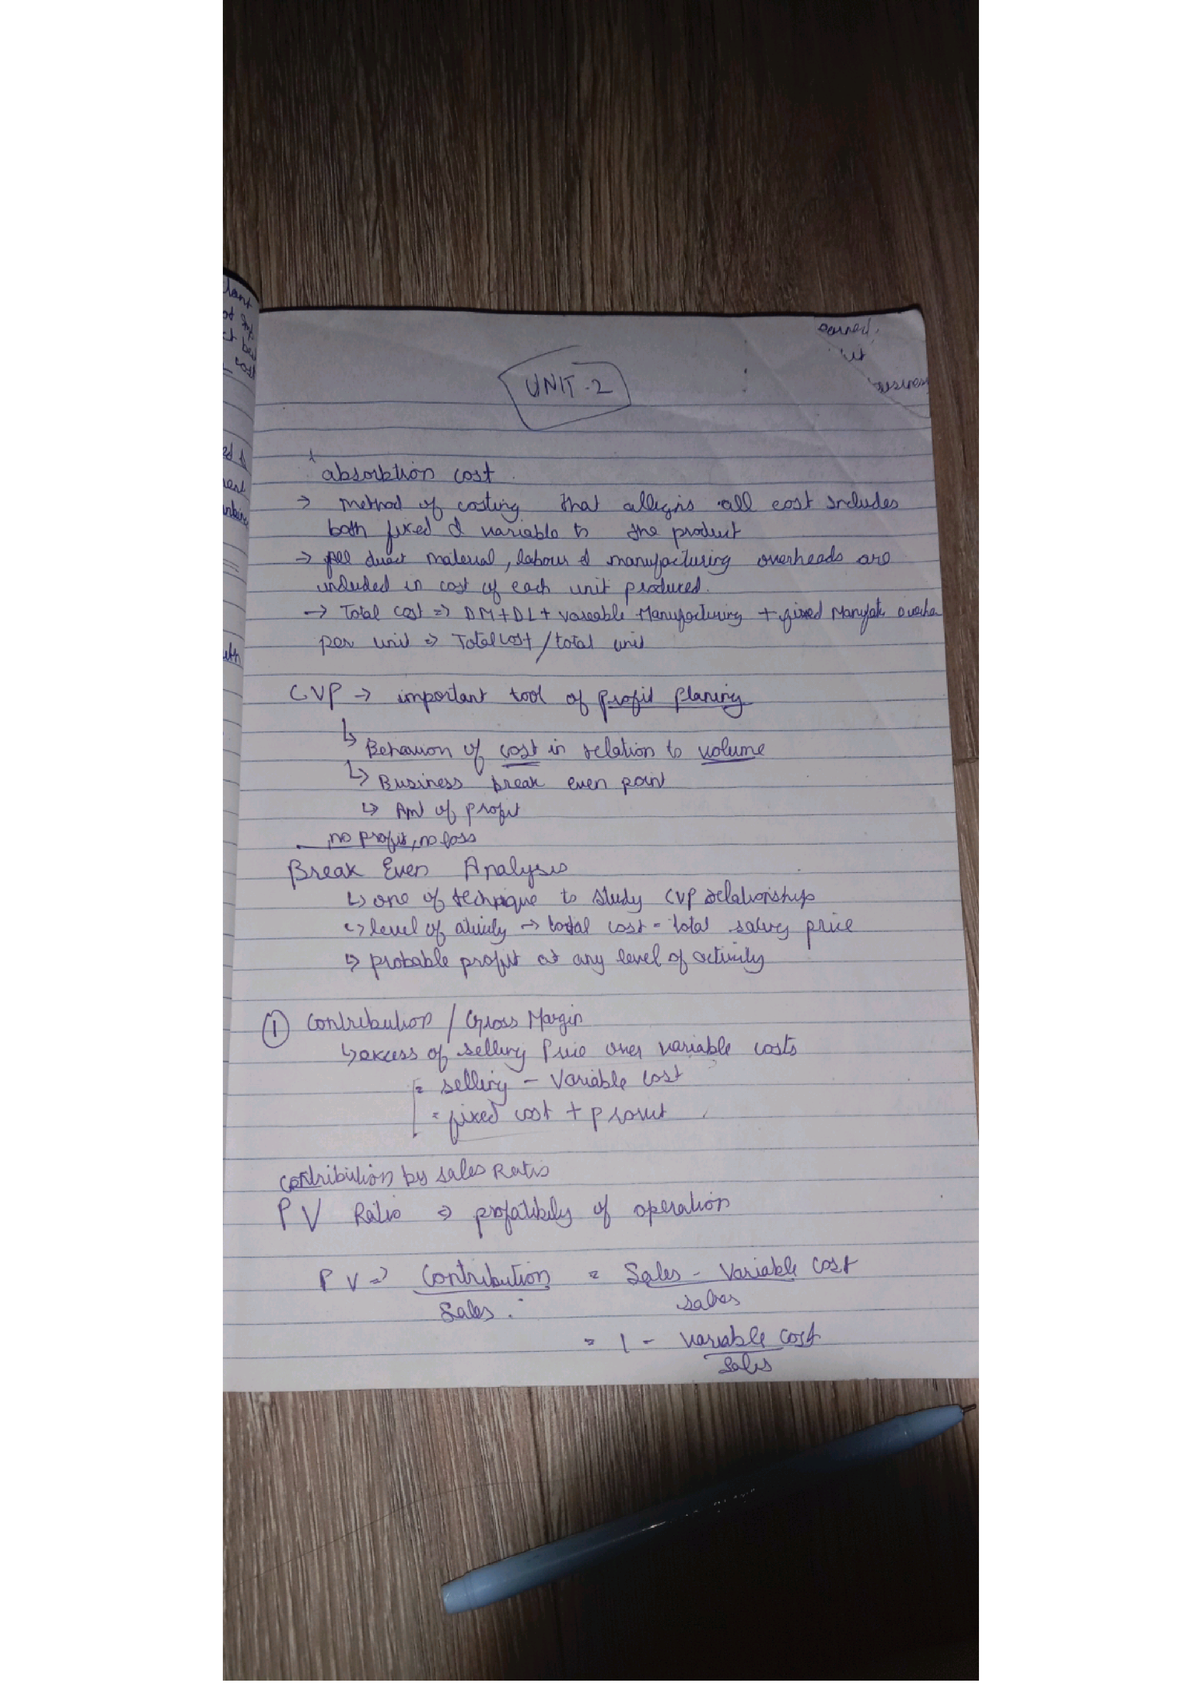 earned,
ut
business
UNIT-2
absorbtion cost
→ method of costing that alligns all cost includes
both fixed & variable to the product
→ all direct material, labour & manufacturing overheads are
included in cost of each unit produced.
→ Total cost ⇒ DM+DL+ variable Manufacturing + fixed Manufat overhe
per unit ⇒ Total cost / total unit
CVP → important tool of profit planing
↳ Behaviour of cost in relation to volume
↳ Business break even point
↳ Amt of profit
no profit, no loss
Break Even Analysis
↳ one of technique to study CVP relationship
↳ level of ativity → total cost = total salling price
↳ probable profit at any level of activity
① Contribution / Gross Margin
↳ excess of selling Price over variable costs
= selling - Variable cost
= fixed cost + profit
Contribution by sales Ratio
PV Ratio ⇒ profatibily of operation
PV ⇒ Contribution = Sales - Variable cost
Sales. sales
= 1 - variable cost
Sales